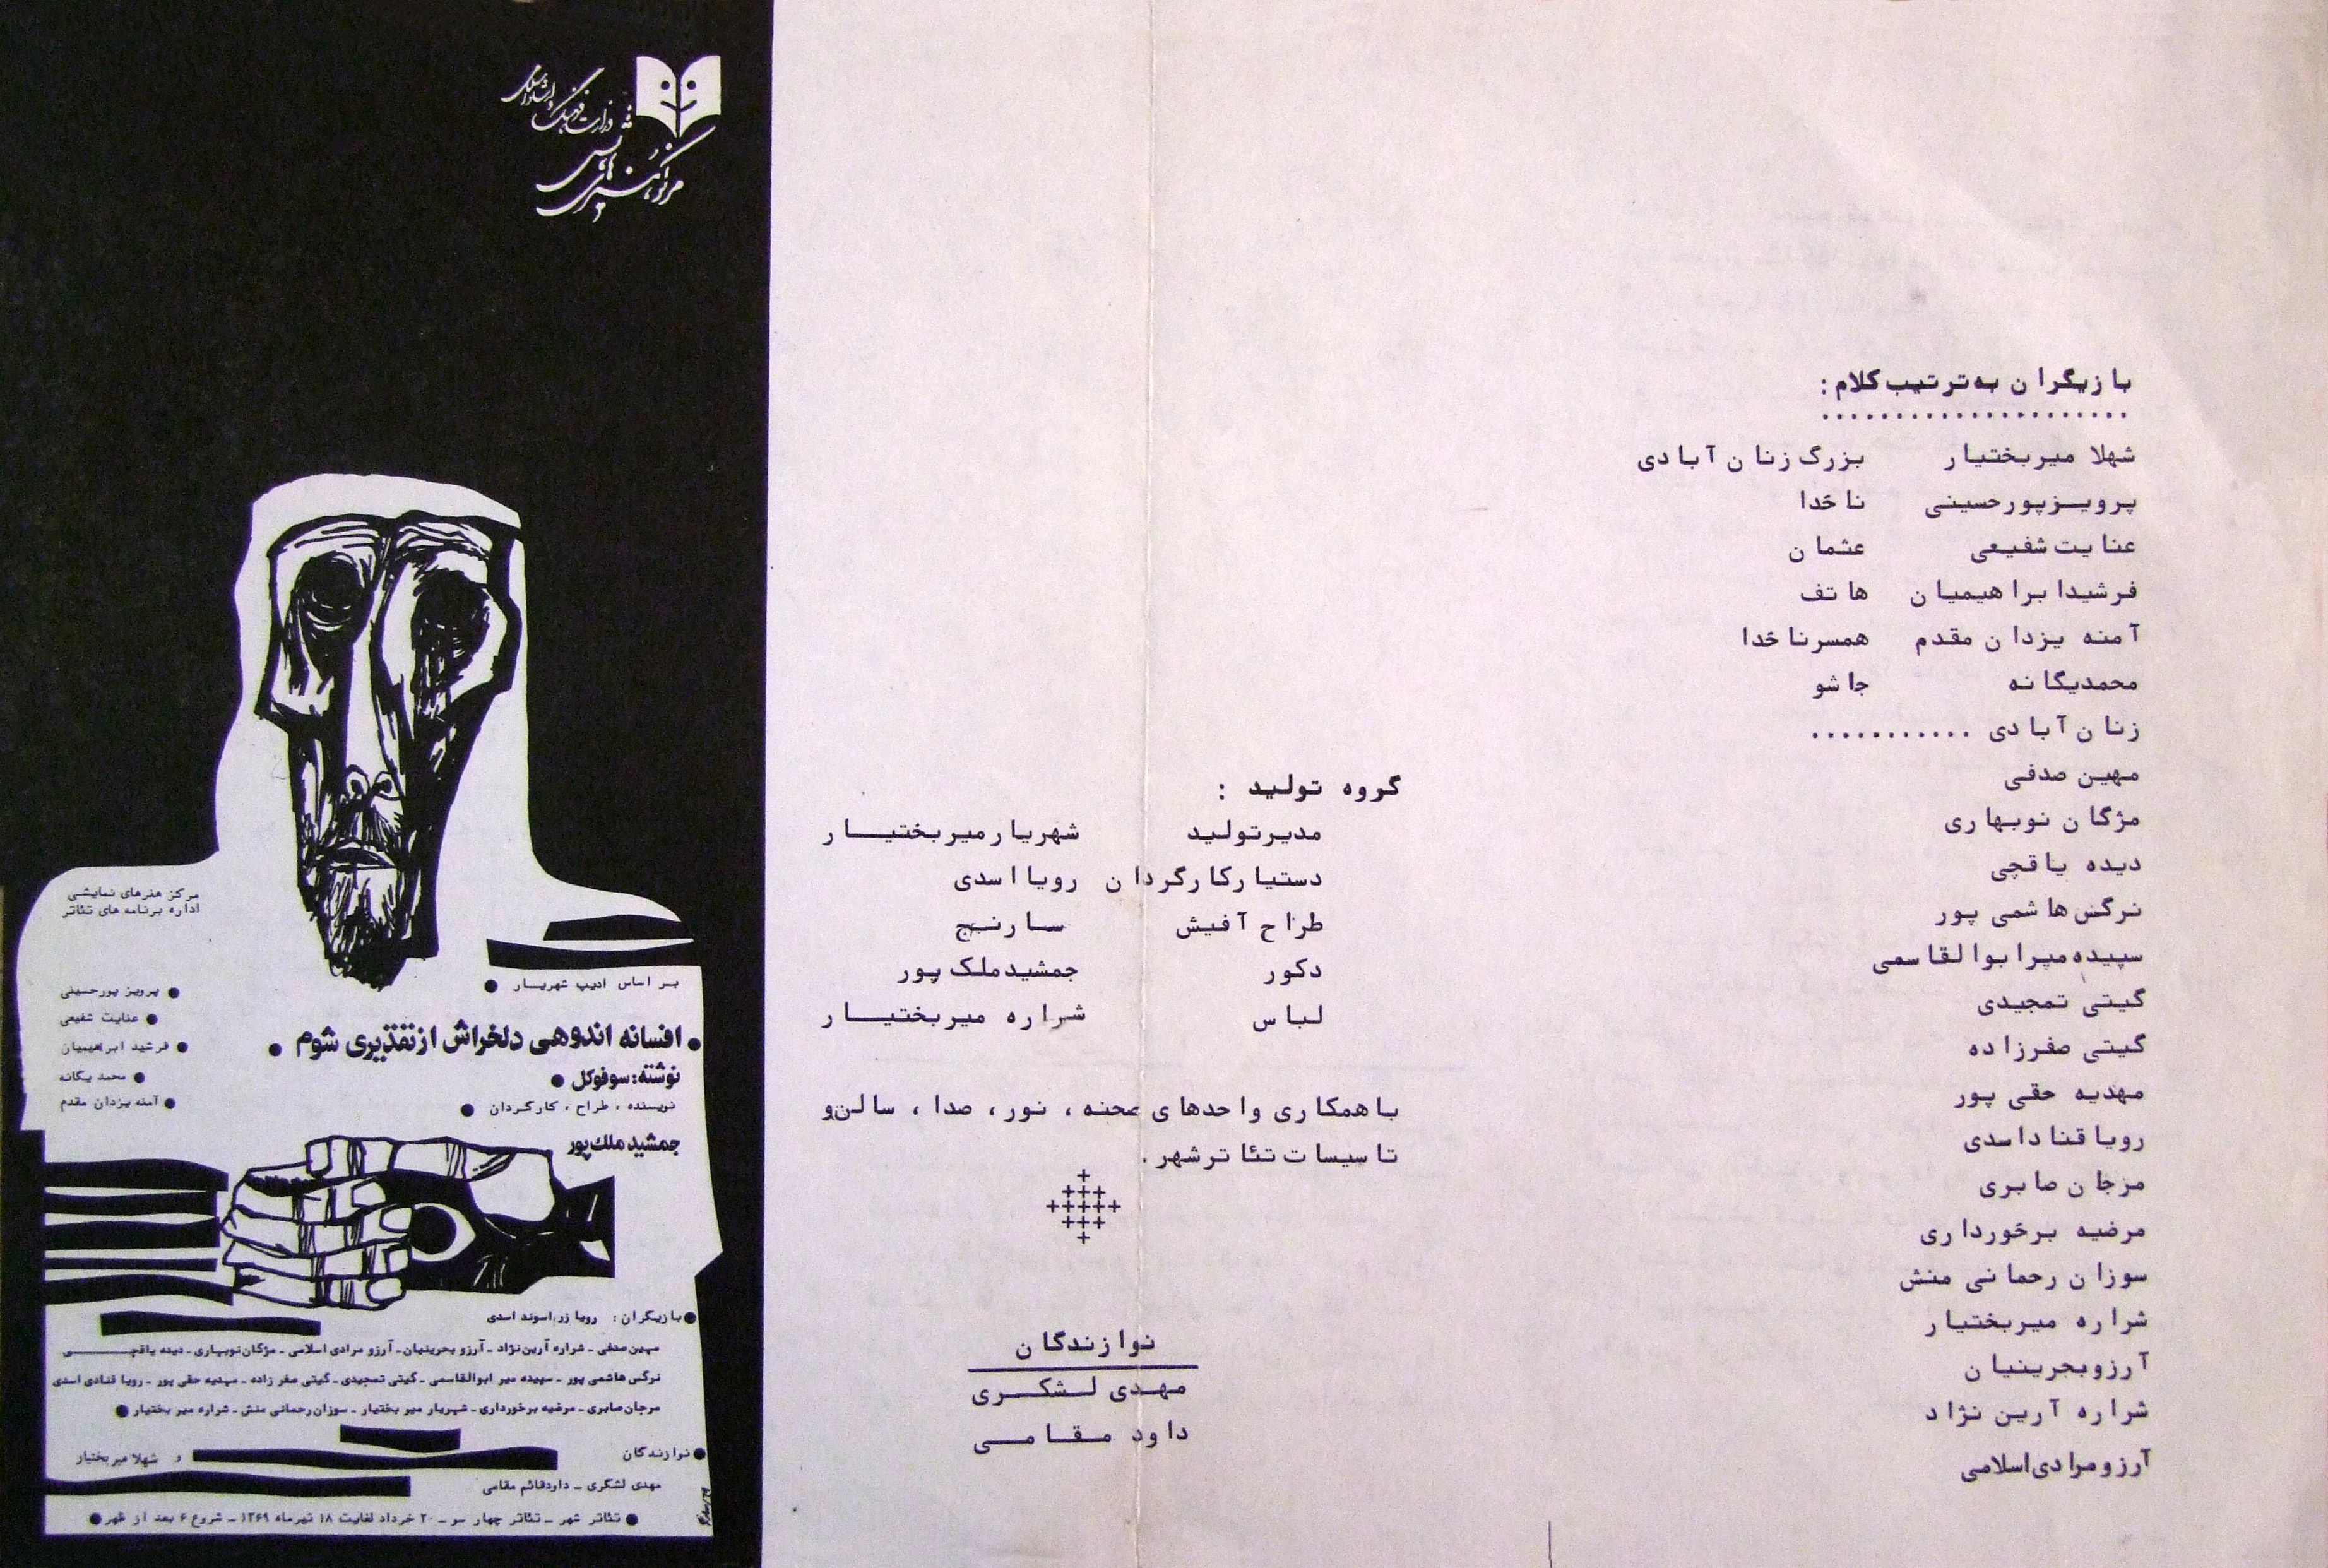 وزارت فرهنگ و ارشاد اسلامی
مرکز هنرهای نمایشی
مرکز هنرهای نمایشی
اداره برنامه های تئاتر
پرویز پورحسینی ●
عنایت شفیعی ●
فرشید ابراهیمیان ●
محمد یگانه ●
آمنه یزدان مقدم ●
بر اساس ادیپ شهریار ●
● افسانه اندوهی دلخراش از تقدیری شوم ●
نوشته: سوفوکل ●
نویسنده ، طراح ، کارگردان ●
جمشید ملک‌پور
● بازیگران : رویا زراسوند اسدی
مهین صدفی ـ شراره آرین نژاد ـ آرزو بحرینیان ـ آرزو مرادی اسلامی ـ مژگان نوبهاری ـ دیده یاقچی
نرگس هاشمی پور ـ سپیده میر ابوالقاسمی ـ گیتی تمجیدی ـ گیتی صفر زاده ـ مهدیه حقی پور ـ رویا قنادی اسدی
مرجان صابری ـ مرضیه برخورداری ـ شهریار میر بختیار ـ سوزان رحمانی منش ـ شراره میر بختیار ●
و شهلا میربختیار
● نوازندگان
مهدی لشکری ـ داود قائم مقامی
● تئاتر شهر ـ تئاتر چهار سو ـ ۲۰ خرداد لغایت ۱۸ تیرماه ۱۳۶۹ ـ شروع ۶ بعد از ظهر ●
گروه تولید :
مدیرتولید شهریارمیربختیار
دستیارکارگردان رویااسدی
طراح آفیش سارنج
دکور جمشیدملک پور
لباس شراره میربختیار
باهمکاری واحدهای صحنه ، نور ، صدا ، سالن و
تاسیسات تئاترشهر .
نوازندگان
مهدی لشکری
داود مقامی
بازیگران به‌ترتیب کلام :
شهلا میربختیار بزرگ زنان آبادی
پرویزپورحسینی ناخدا
عنایت شفیعی عثمان
فرشیدابراهیمیان هاتف
آمنه یزدان مقدم همسرناخدا
محمدیگانه جاشو
زنان آبادی ...........
مهین صدفی
مژگان نوبهاری
دیده یاقچی
نرگس هاشمی پور
سپیده میرابوالقاسمی
گیتی تمجیدی
گیتی صفرزاده
مهدیه حقی پور
رویا قناداسدی
مرجان صابری
مرضیه برخورداری
سوزان رحمانی منش
شراره میربختیار
آرزوبحرینیان
شراره آرین نژاد
آرزومرادی‌اسلامی